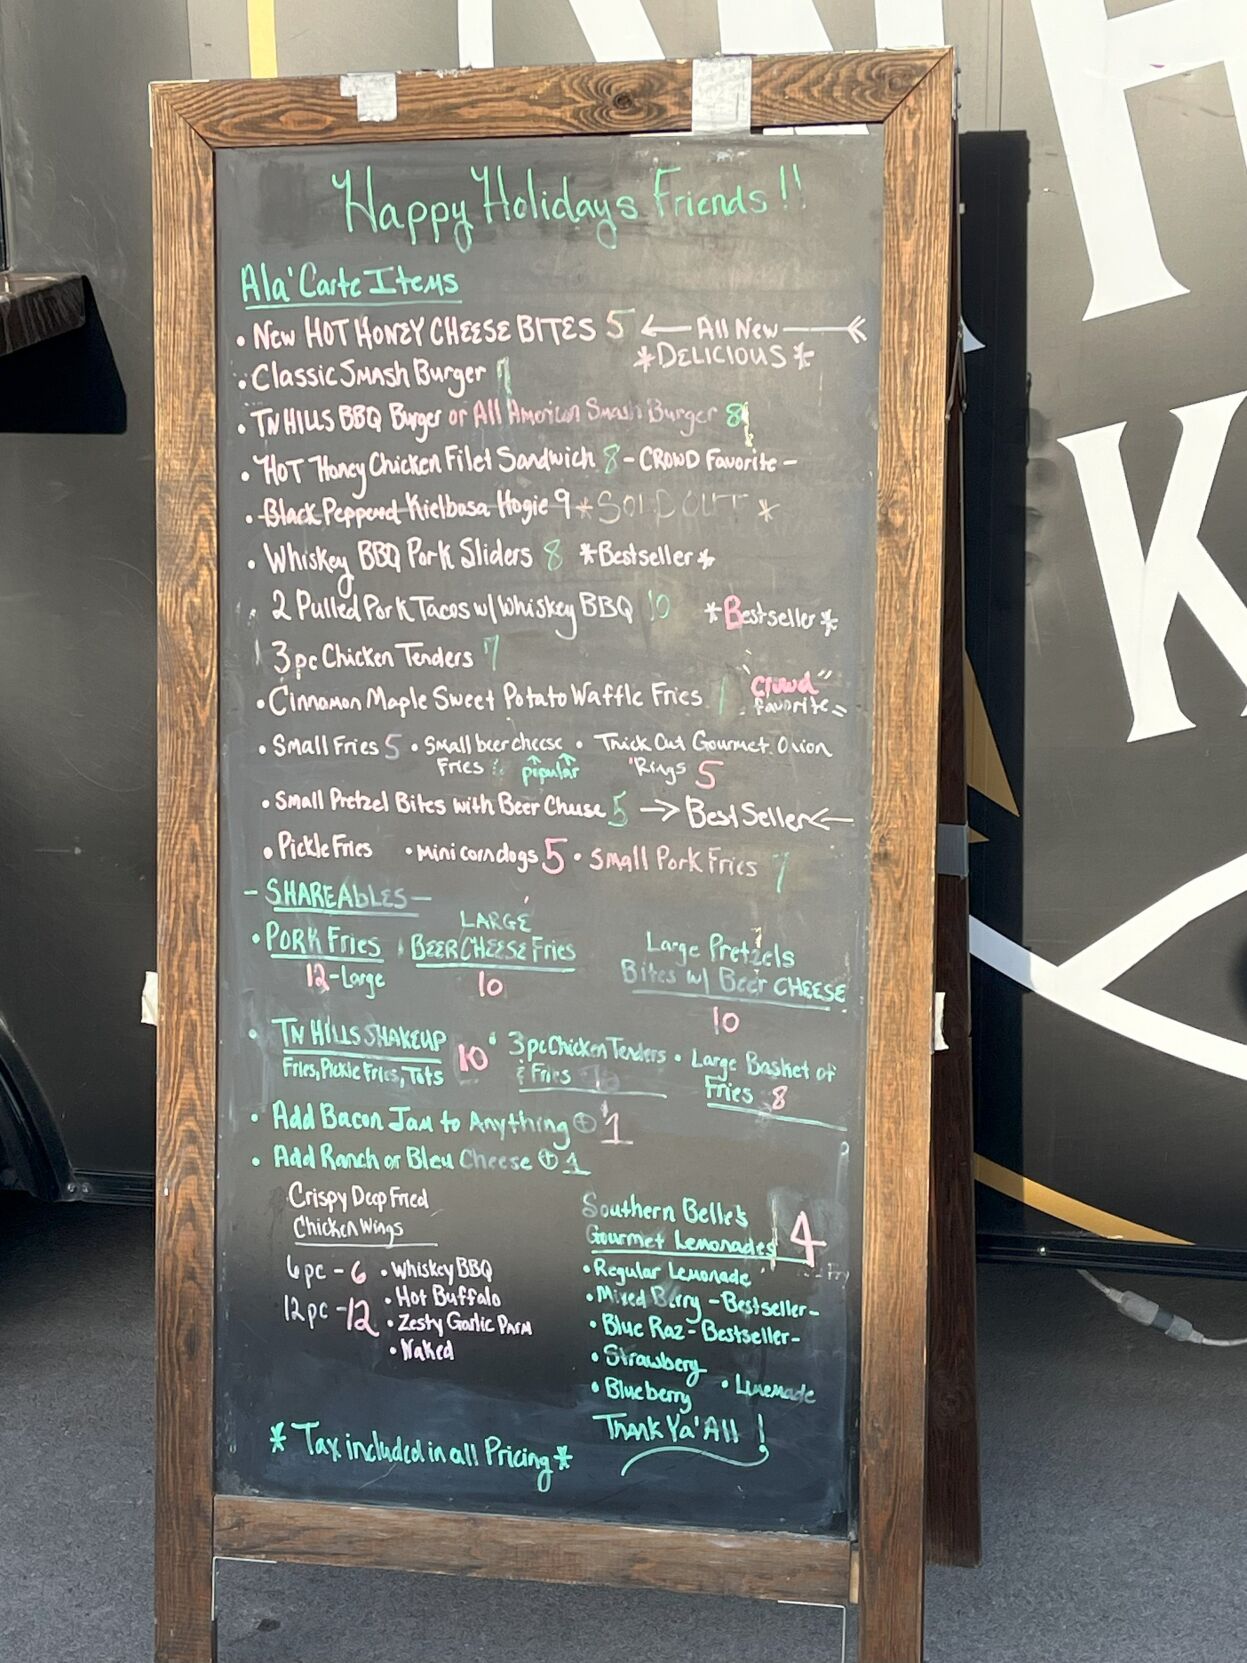 Happy Holidays Friends!!
Ala'Carte Items
• New HOT HONEY CHEESE BITES 5 ← All New
*DELICIOUS*
• Classic Smash Burger 7
• TN HILLS BBQ Burger or All American Smash Burger 8
• HOT Honey Chicken Filet Sandwich 8 - CROWD Favorite -
• Black Peppered Kielbasa Hogie 9 *SOLD OUT*
• Whiskey BBQ Pork Sliders 8 *Bestseller*
2 Pulled Pork Tacos w/ Whiskey BBQ 10 *Bestseller*
3pc Chicken Tenders 7
• Cinnamon Maple Sweet Potato Waffle Fries "Crowd"
favorite
• Small Fries 5 • Small beer cheese • Thick Cut Gourmet Onion
Fries popular Rings 5
• Small Pretzel Bites with Beer Cheese 5 → Best Seller ←
• Pickle Fries • Mini corndogs 5 • Small Pork Fries 7
- SHAREABLES -
• PORK Fries
12-Large
LARGE
BEER CHEESE Fries
10
Large Pretzels
Bites w/ Beer CHEESE
10
• TN HILLS SHAKEUP 10
Fries, Pickle Fries, Tots
• 3pc Chicken Tenders
& Fries
• Large Basket of
Fries 8
• Add Bacon Jam to Anything + $1
• Add Ranch or Bleu Cheese + 1
Crispy Deep Fried
Chicken Wings
6pc - 6
12pc - 12
• Whiskey BBQ
• Hot Buffalo
• Zesty Garlic Parm
• Naked
Southern Belle's
Gourmet Lemonades 4
• Regular Lemonade
• Mixed Berry - Bestseller -
• Blue Raz - Bestseller -
• Strawbery
• Blueberry • Limemade
Thank Ya'All!
* Tax included in all Pricing *